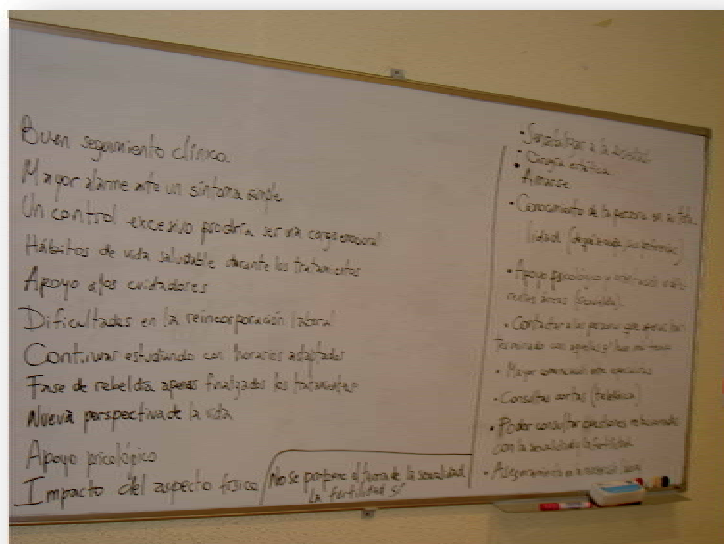 Buen seguimiento clínico.
Mayor alarma ante un síntoma simple
Un control excesivo prodría ser una carga emocional
Hábitos de vida saludable durante los tratamientos
Apoyo a los cuidadores
Dificultades en la reincorporación laboral
Continuar estudiando con horarios adaptados
Fase de rebeldía apenas finalizados los tratamientos
Nueva perspectiva de la vida
Apoyo psicológico
Impacto del aspecto físico
No se propone el tema de la sexualidad
La fertilidad sí
• Sensibilizar a la sociedad
• Cirugía estética
• Amarse
• Conocimiento de la persona en su tota
lidad
• Apoyo psicológico
áreas (sexualidad).
• Contactar a las personas que
terminado con
• Mayor comunicación entre
• Consultas cortas (telefónica)
• Poder consultar cuestiones relacionadas
con la sexualidad y la fertilidad
• Asesoramiento en material laboral